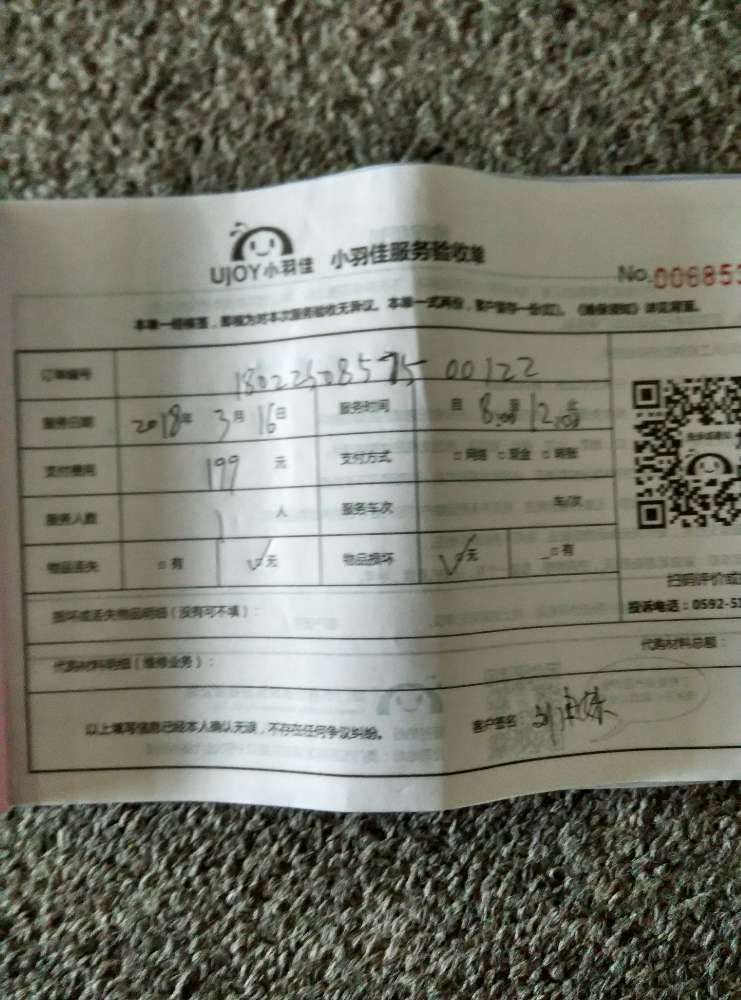 UJOY小羽佳 小羽佳服务验收单
No.00685
本单一经核签，即视为对本次服务验收无异议。本单一式两份，客户留存一份(红)。《维保须知》详见背面。
订单编号 18022508575 00122
服务日期 2018年 3月 16日 服务时间 自 8:00至 12:00止
支付费用 199 元 支付方式 □网络 □现金 □转账
服务人数 1 人 服务车次 车/次
物品丢失 □有 ☑无 物品损坏 ☑无 □有
扫码评价或
投诉电话：0592-5
损坏或丢失物品明细（没有可不填）：
代购材料明细（维修业务）： 代购材料总额：
以上填写信息已经本人确认无误，不存在任何争议纠纷。 客户签名：